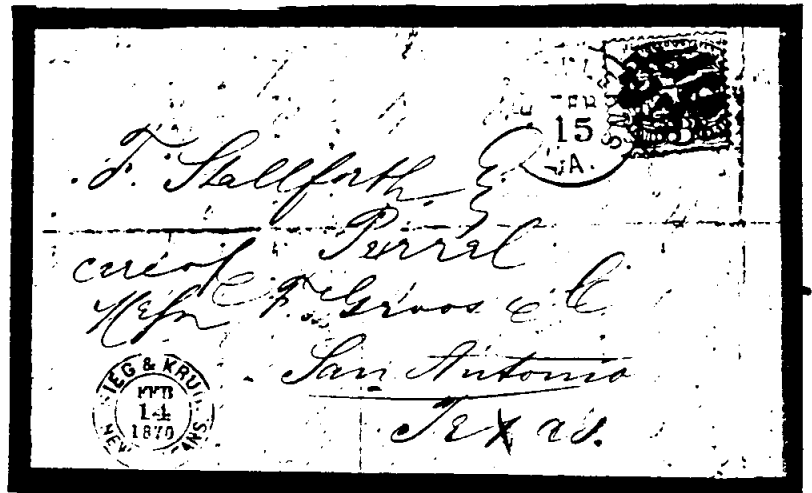 FEB
15
LA.
F. Stallforth Esq
Parral
care of
Messrs F. Groos & Co
San Antonio
Texas.
FEB
14
1870
NEW